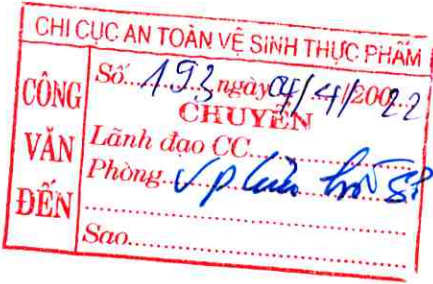 CHI CỤC AN TOÀN VỆ SINH THỰC PHẨM
CÔNG VĂN ĐẾN
Số...193...ngày 04/4/200...22
CHUYỂN
Lãnh đạo CC...
Phòng...Vp lưu hồ sơ
Sao...